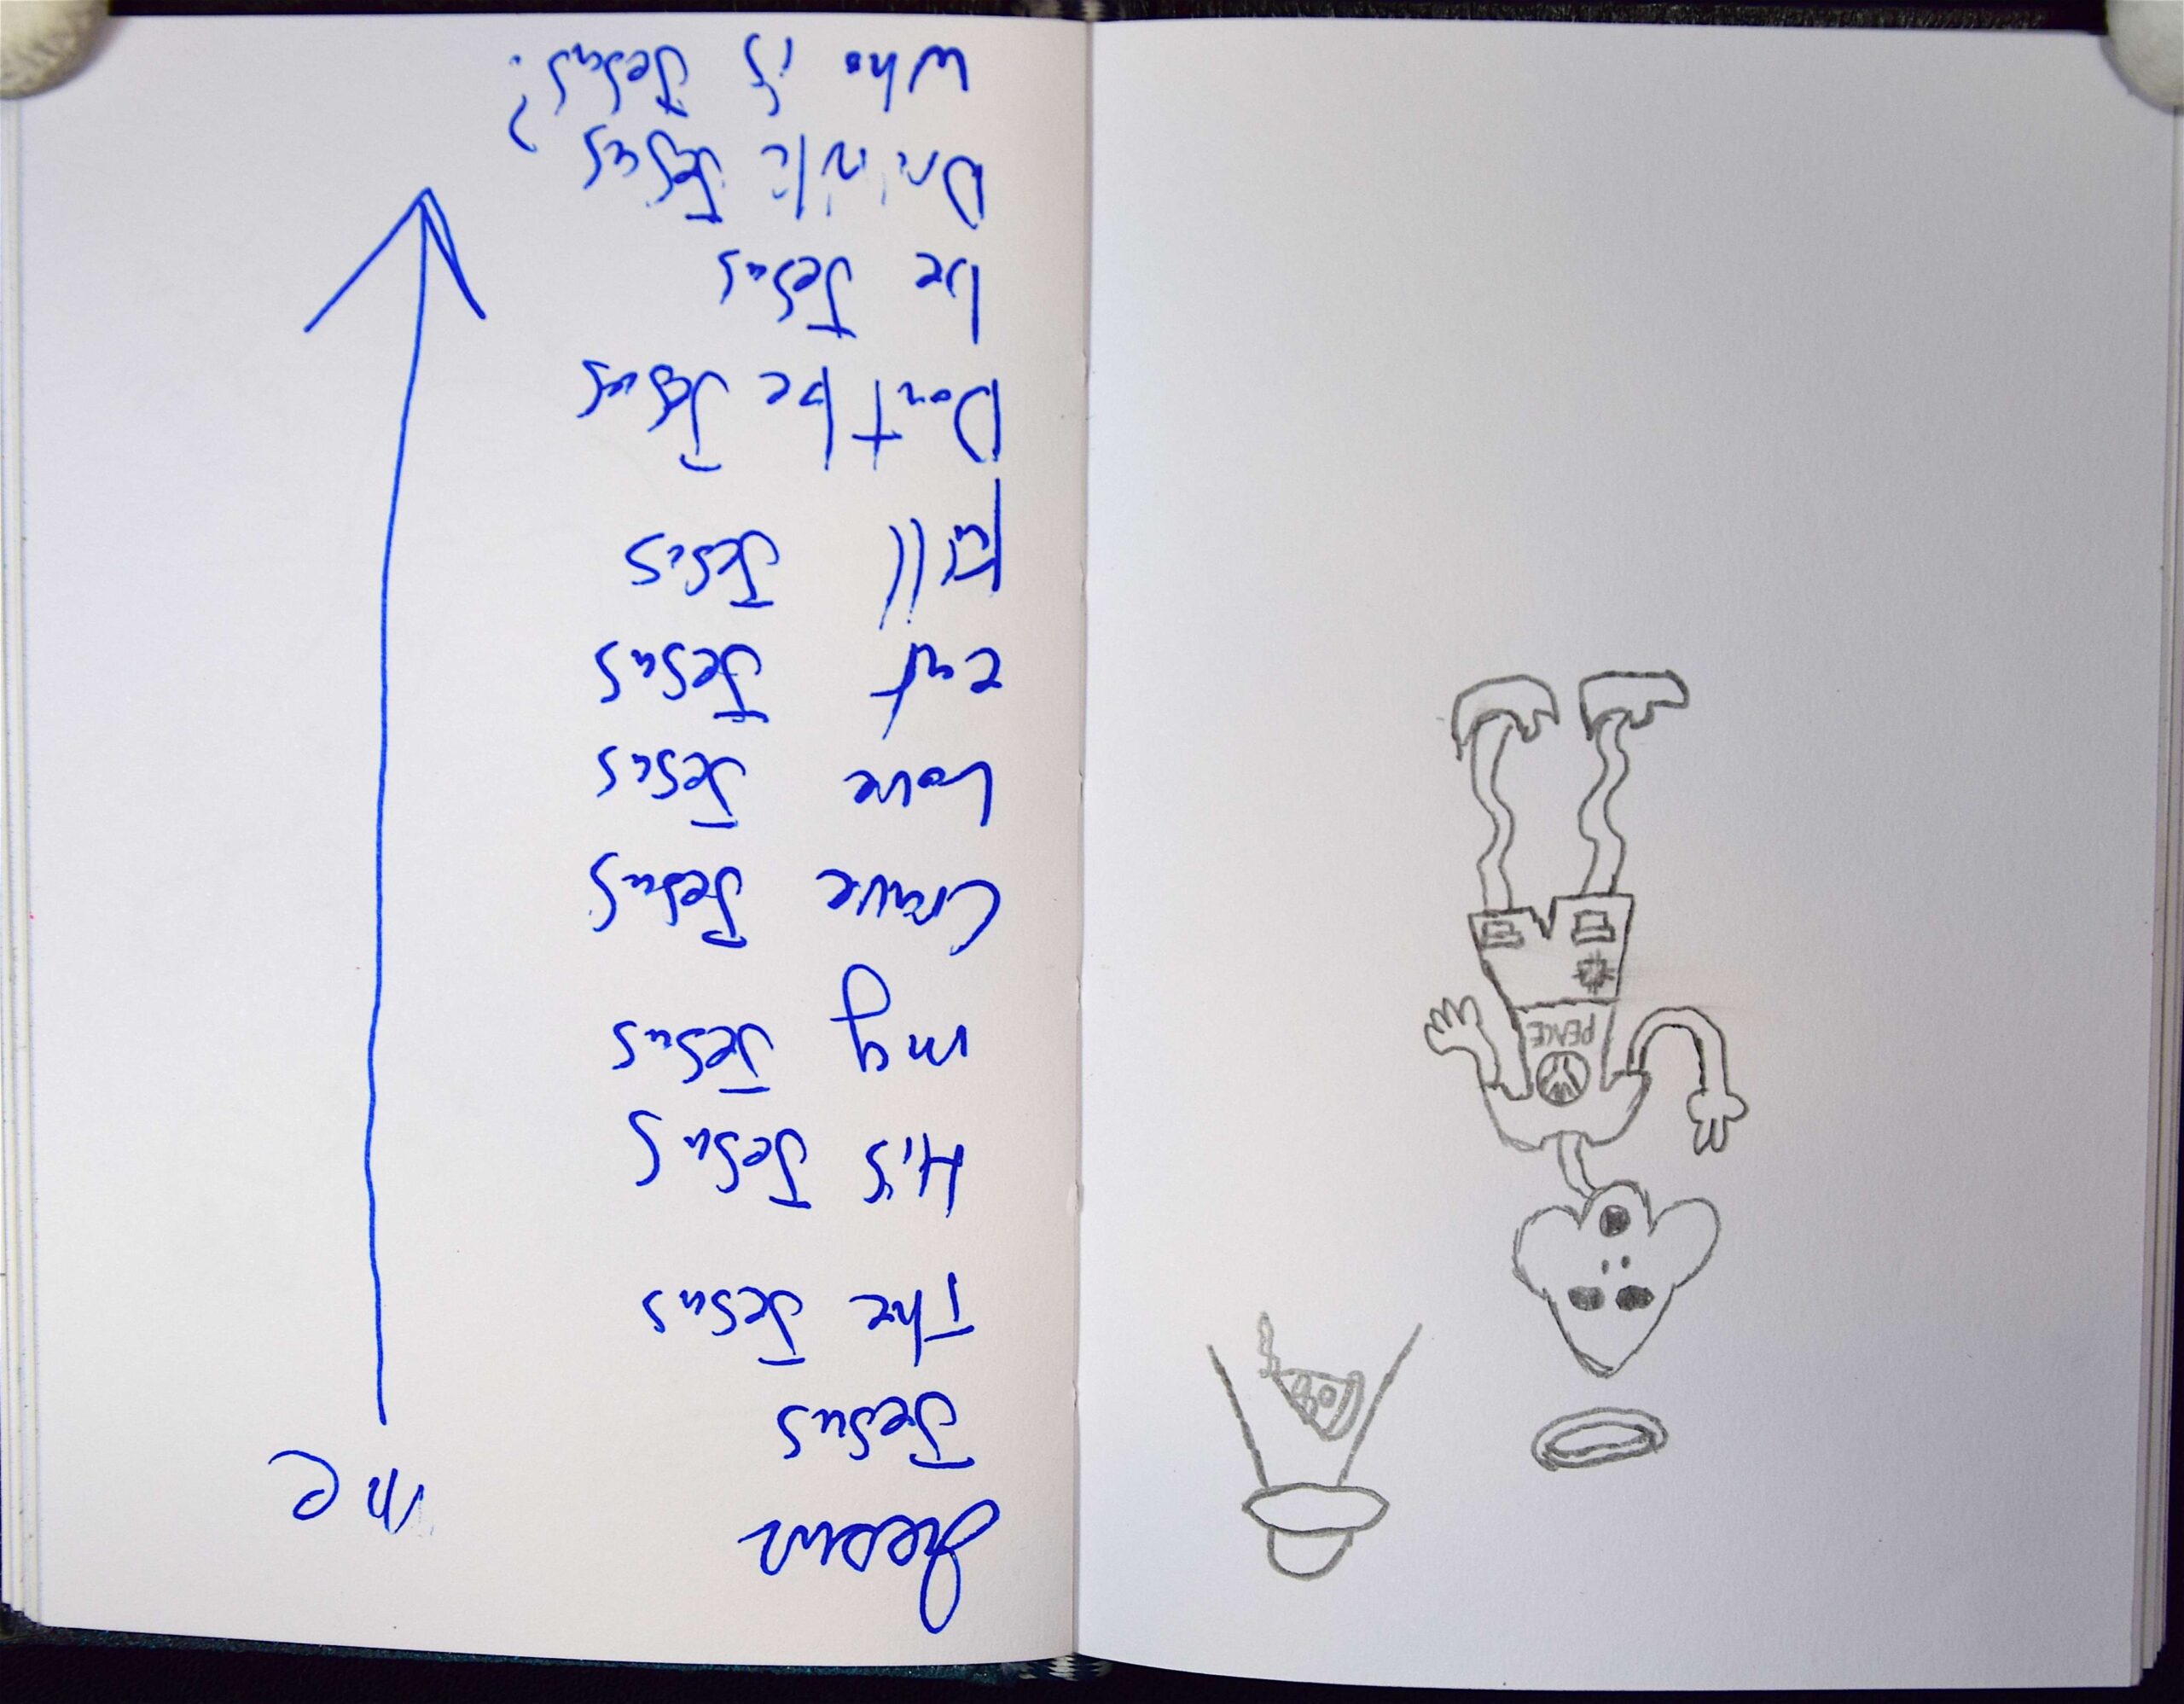 Jesus
Jesus
The Jesus
His Jesus
my Jesus
Crave Jesus
Love Jesus
eat Jesus
kill Jesus
Don't be Jesus
be Jesus
Drink Jesus
Who is Jesus?
me
PEACE